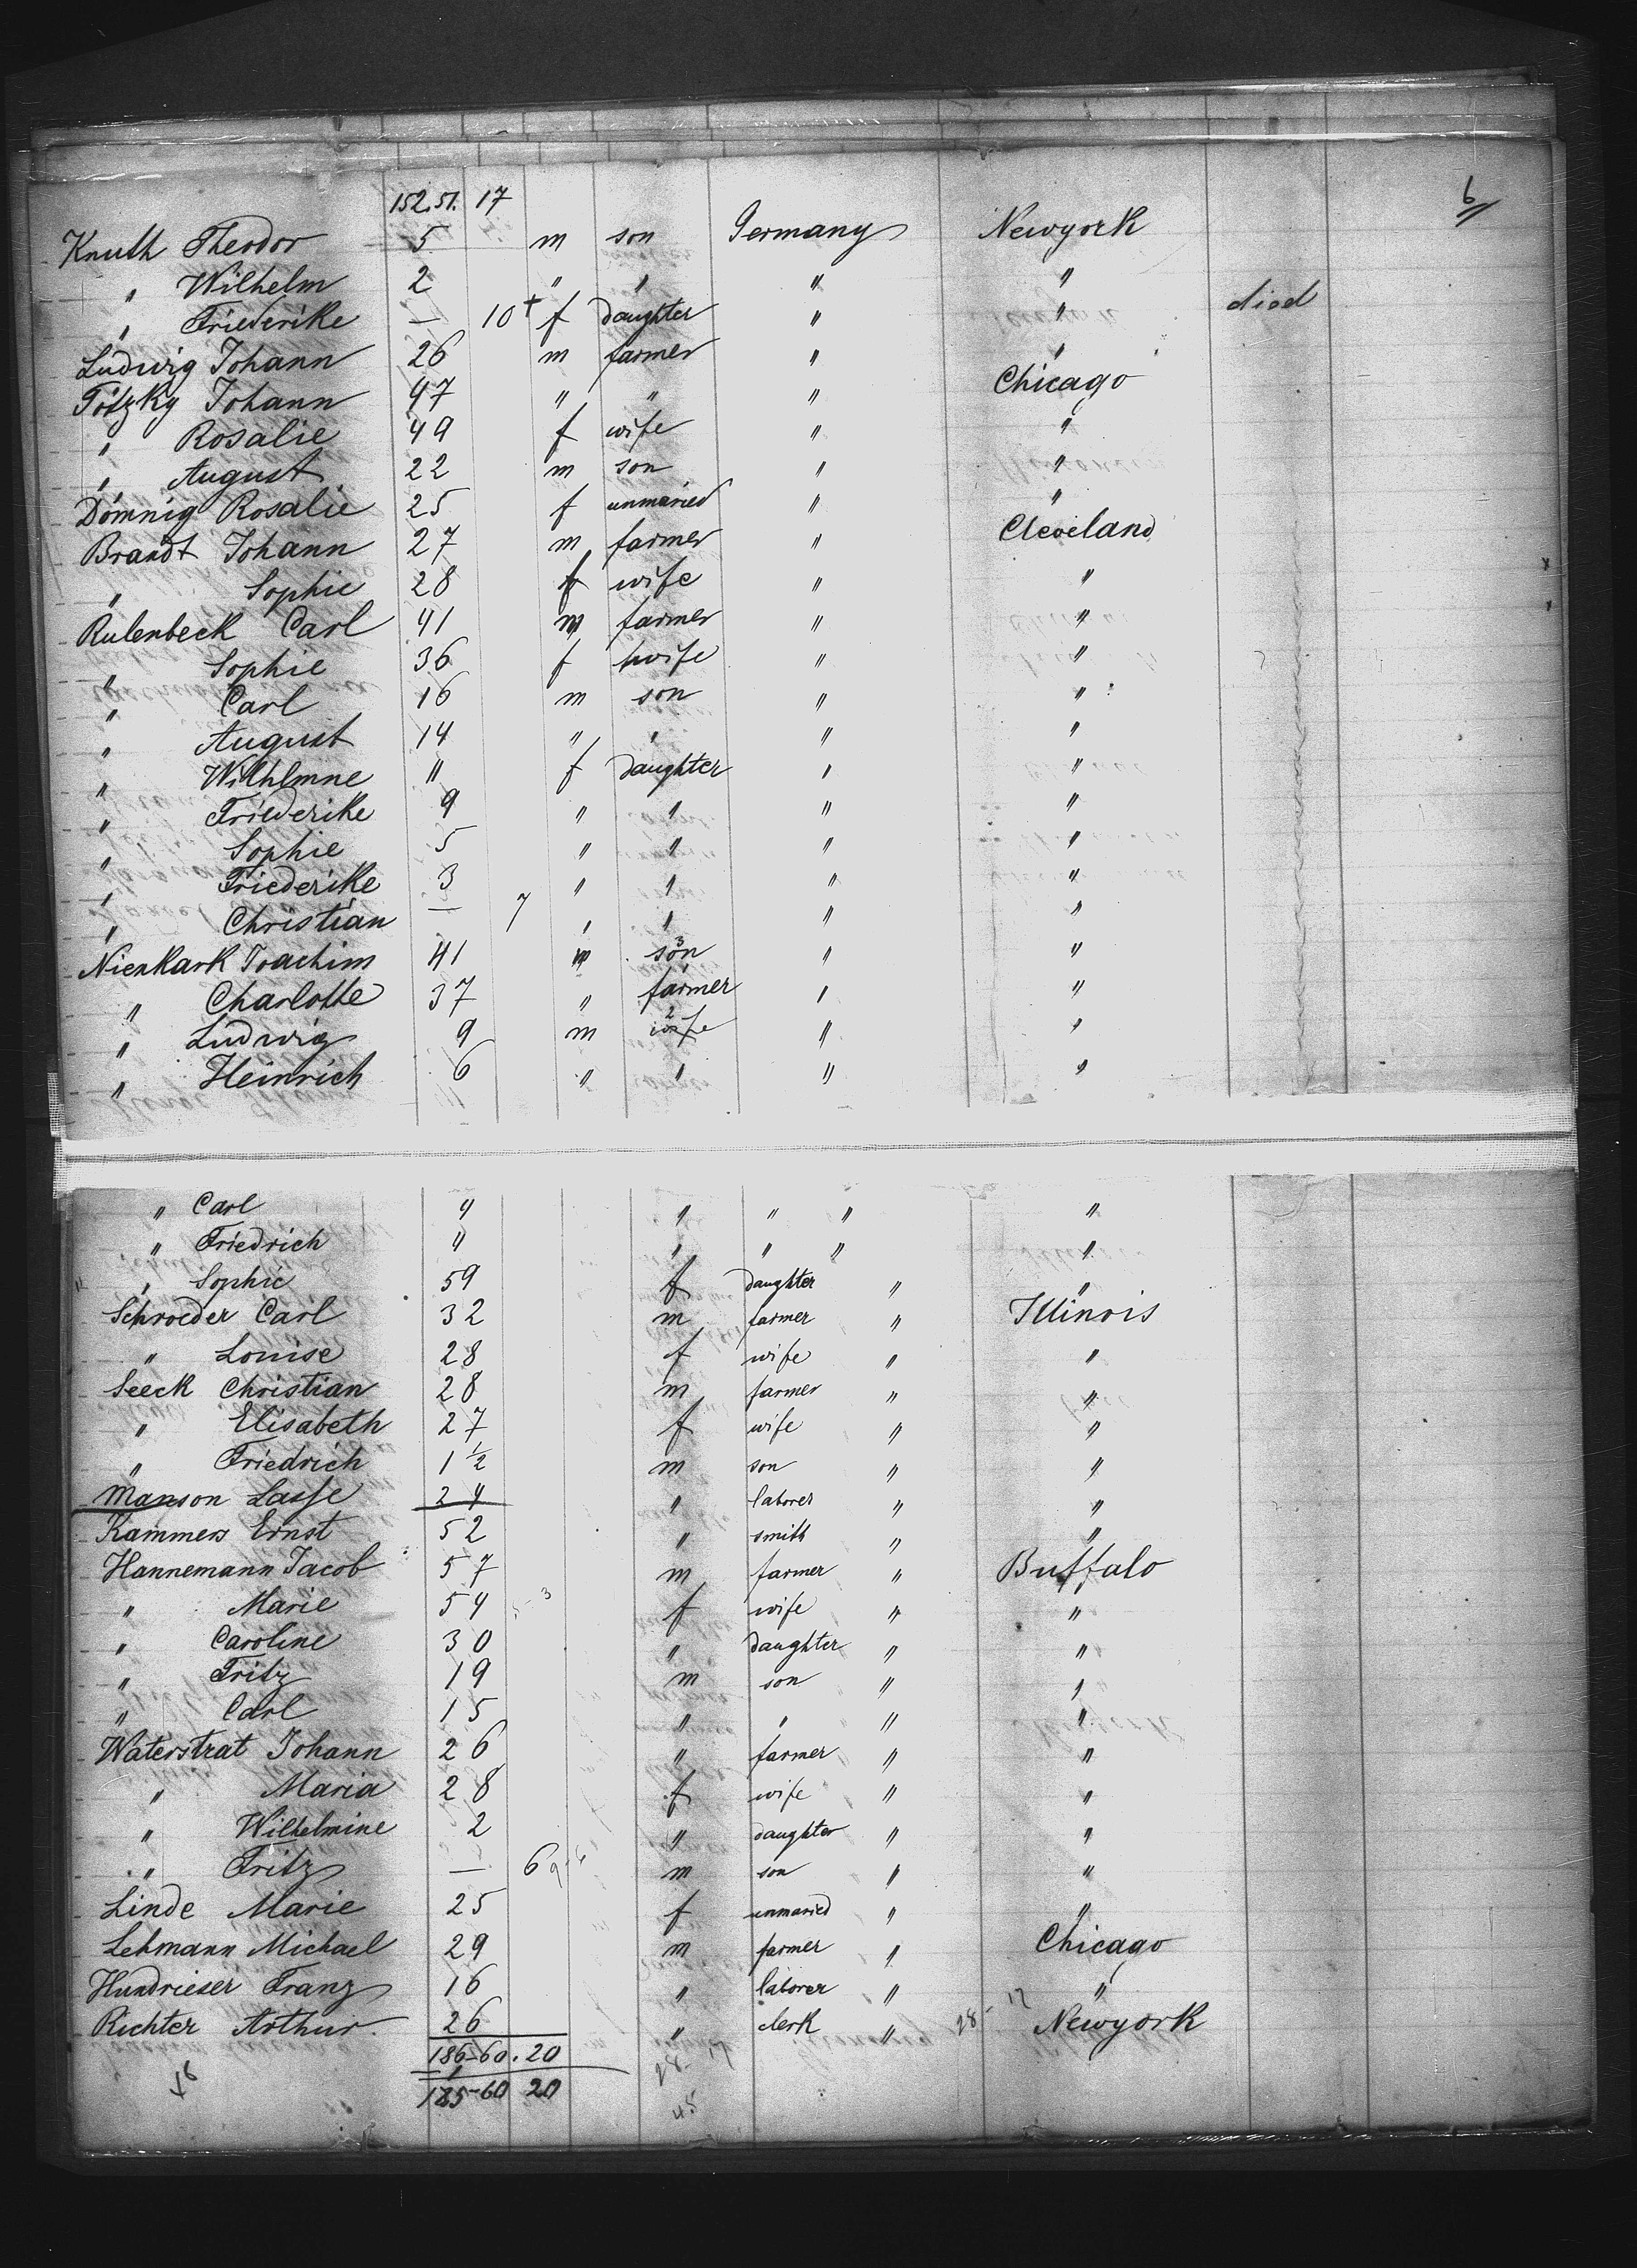 152. 51. 17
6
Knuth Theodor 5 m son Germany Newyork
" Wilhelm 2 " " " "
" Friederike — 10 + f daughter " " died
Ludwig Johann 26 m farmer " "
Totzky Johann 47 " " " Chicago
" Rosalie 49 f wife " "
" August 22 m son " "
Domnig Rosalie 25 f unmaried " "
Brandt Johann 27 m farmer " Cleveland
" Sophie 28 f wife " "
Rulenbeck Carl 41 m farmer " "
" Sophie 36 f wife " "
" Carl 16 m son " "
" August 14 " " " "
" Wilhlmne 11 f daughter " "
" Friederike 9 " " " "
" Sophie 5 " " " "
" Friederike 3 " " " "
" Christian — 7 " " " "
Nienkark Joachim 41 m son 3 " "
" Charlotte 37 " farmer 1 " "
" Ludwig 9 m wife 2 " "
" Heinrich 6 " " " "
" Carl 4 " " " "
" Friedrich 4 " " " "
" Sophie 59 f daughter " "
Schroeder Carl 32 m farmer " Illinois
" Louise 28 f wife " "
Seeck Christian 28 m farmer " "
" Elisabeth 27 f wife " "
" Friedrich 1 1/2 m son " "
Manson Lasse 24 " laborer " "
Kammers Ernst 52 " smith " "
Hannemann Jacob 57 m farmer " Buffalo
" Marie 54 f wife " "
" Caroline 30 " daughter " "
" Fritz 19 m son " "
" Carl 15 " " " "
Waterstrat Johann 26 " farmer " "
" Maria 28 f wife " "
" Wilhelmine 2 " daughter " "
" Fritz — 6 m son " "
Linde Marie 25 f unmaried " "
Lehmann Michael 29 m farmer " Chicago
Hundrieser Franz 16 " laborer " "
Richter Arthur 26 " clerk " Newyork
186-60. 20
1
185-60 20